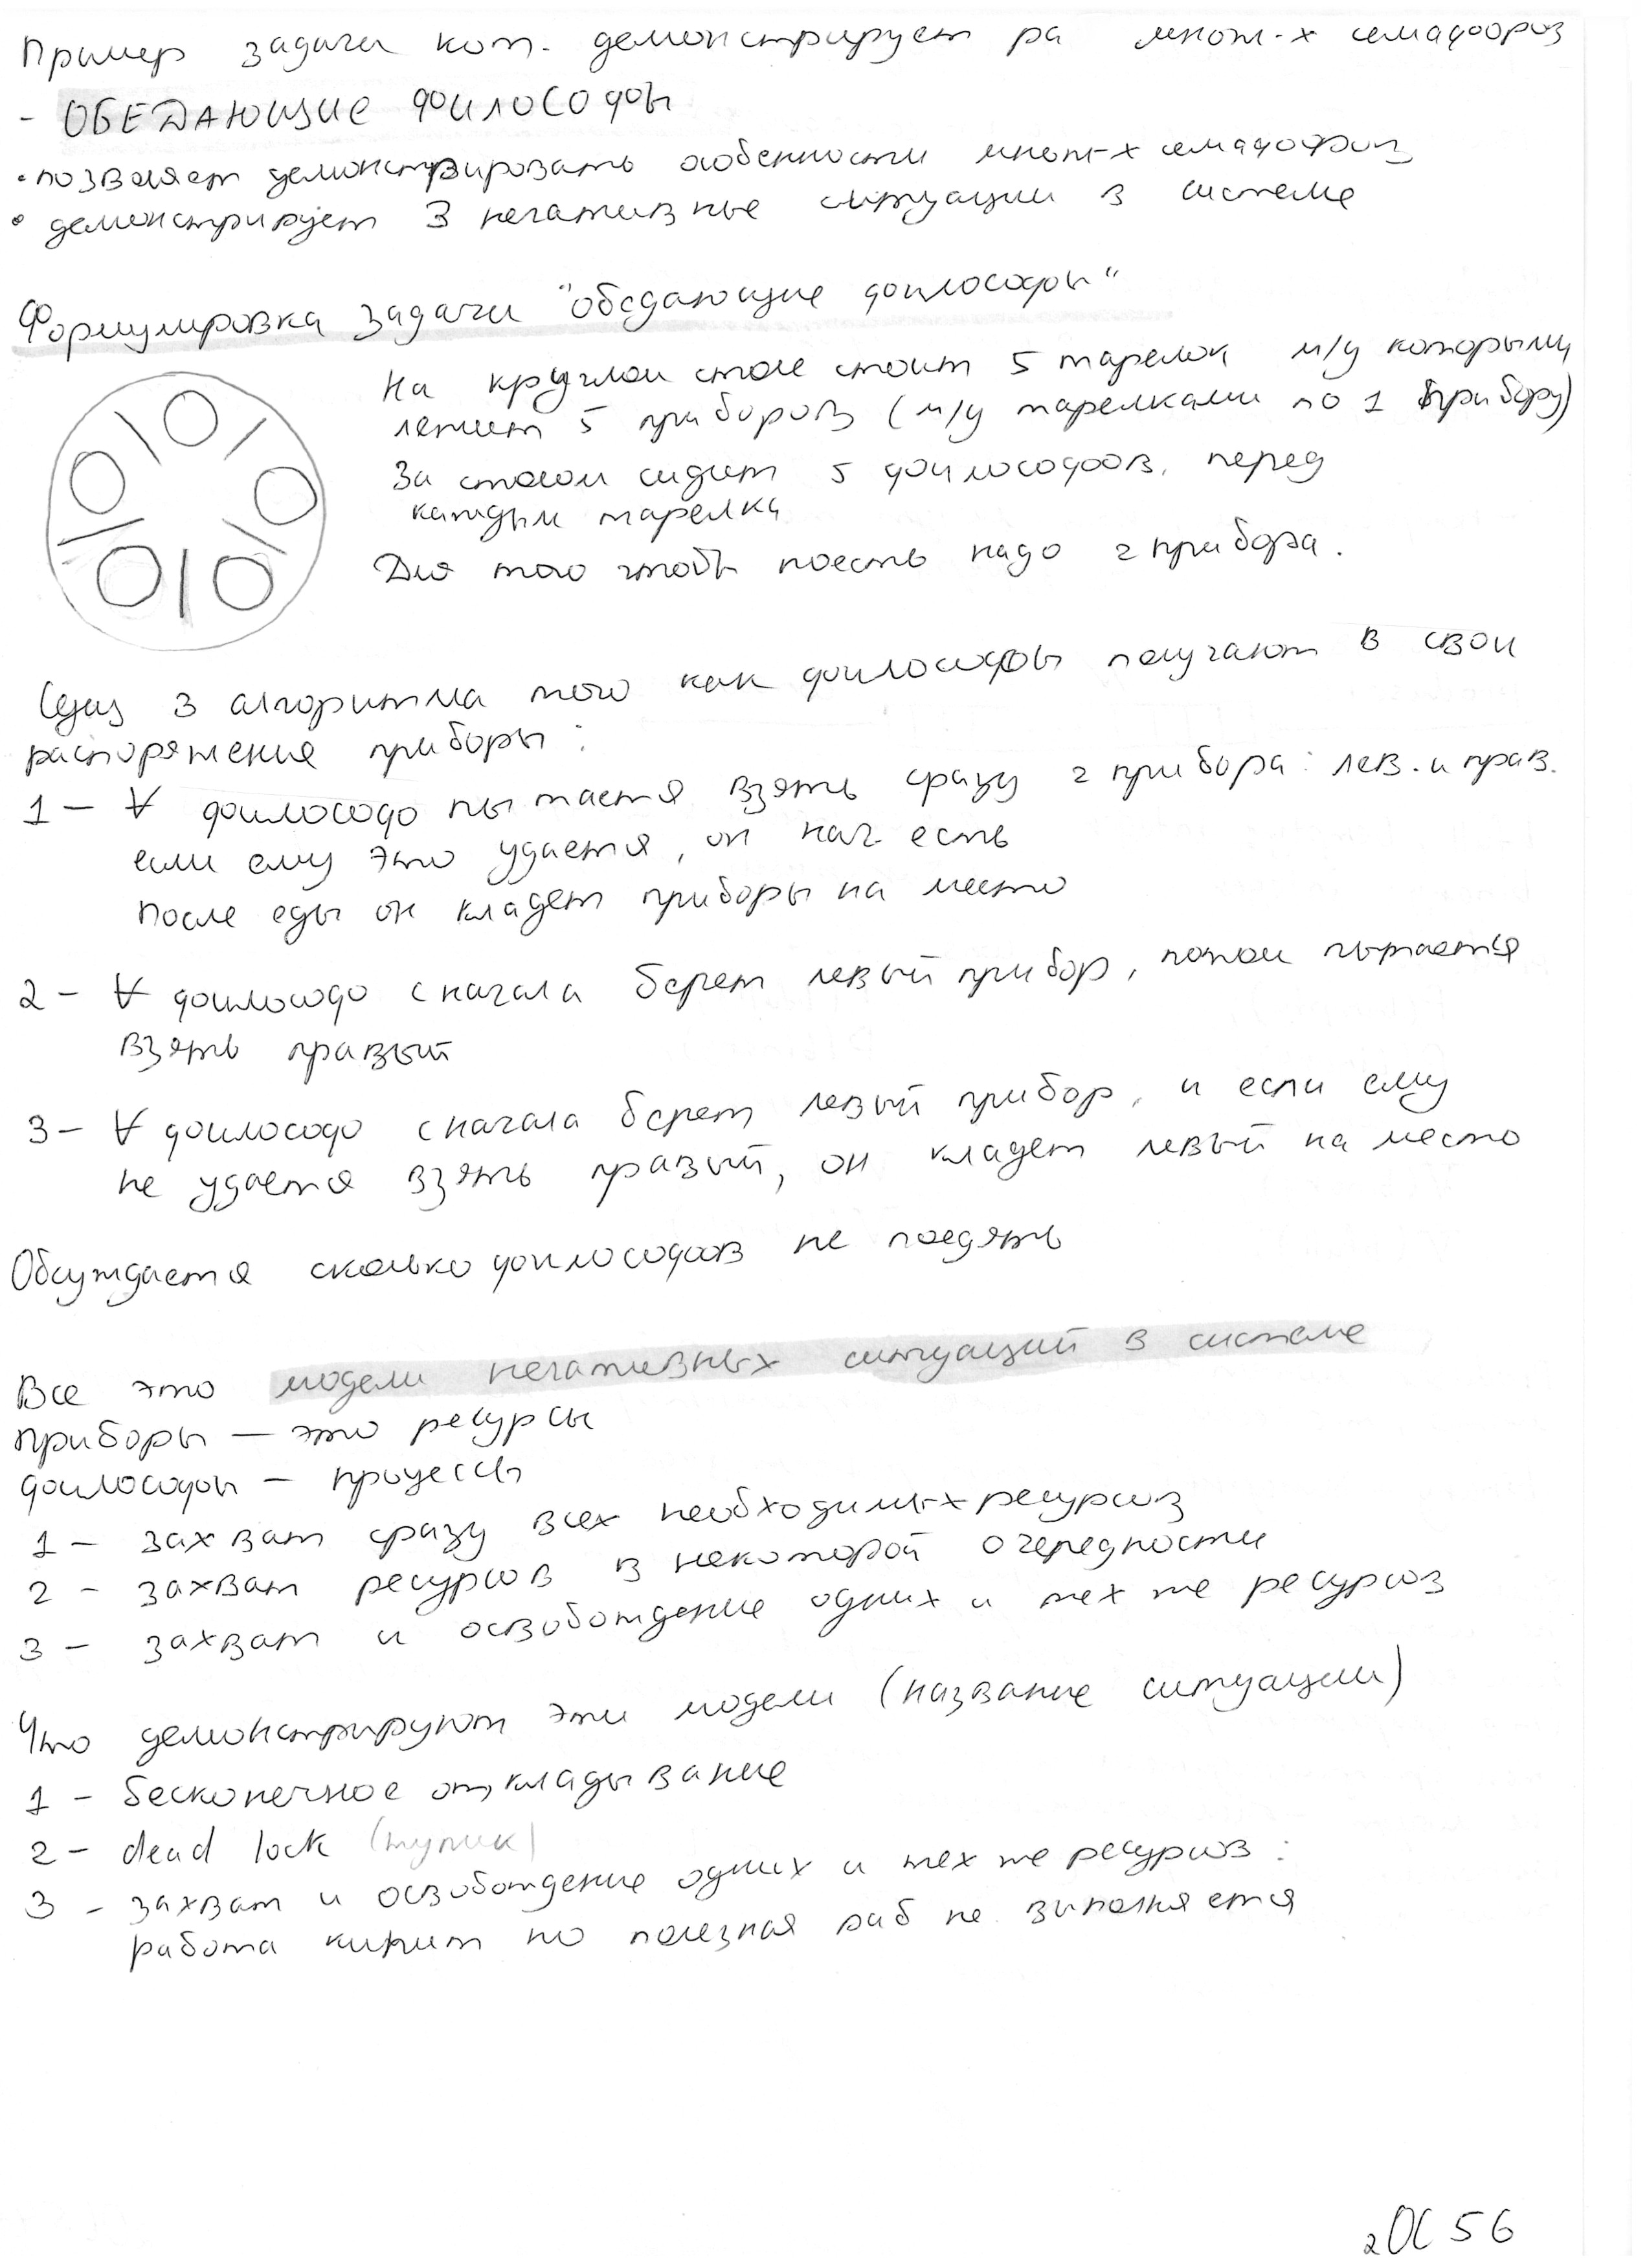 Пример задачи кот. демонстрирует ра множ-х семафоров
- ОБЕДАЮЩИЕ ФИЛОСОФЫ
• позволяет демонстрировать особенности множ-х семафоров
• демонстрирует 3 негативные ситуации в системе
Формулировка задачи "обедающие философы"
На круглом столе стоит 5 тарелок м/у которыми
лежит 5 приборов (м/у тарелками по 1 прибору)
За столом сидит 5 философов, перед
каждым тарелка
Для того чтобы поесть надо 2 прибора.
Сущ 3 алгоритма того как философы получают в свои
распоряжения приборы:
1 - ∀ философ пытается взять сразу 2 прибора: лев. и прав.
если ему это удается, он нач. есть
После еды он кладет приборы на место
2 - ∀ философ сначала берет левый прибор, потом пытается
взять правый
3 - ∀ философ сначала берет левый прибор, и если ему
не удается взять правый, он кладет левый на место
Обсуждается сколько философов не поедять
Все это модели негативных ситуаций в системе
приборы — это ресурсы
философы — процессы
1 - захват сразу всех необходимых ресурсов
2 - захват ресурсов в некоторой очередности
3 - захват и освобождение одних и тех же ресурсов
Что демонстрируют эти модели (название ситуации)
1 - бесконечное откладывание
2 - dead lock (тупик)
3 - захват и освобождение одних и тех же ресурсов:
работа кипит но полезная раб не выполняется
2 ОС 56